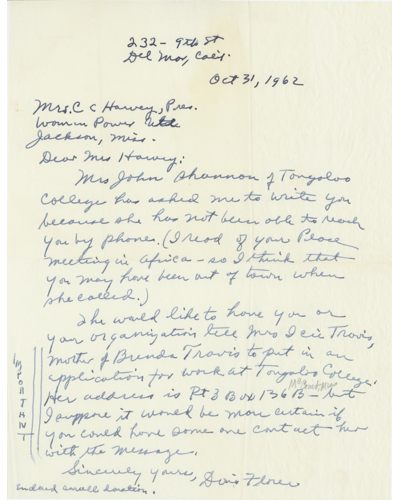 232 - 9th St
Del Mar, Calif.
Oct 31, 1962
Mrs. C C Harvey, Pres.
Woman Power
Jackson, Miss.
Dear Mrs Harvey:
Mrs John Shannon of Tongaloo
College has asked me to write you
because she has not been able to reach
you by phone. (I read of your Peace
meeting in Africa - so I think that
you may have been out of town when
she called.)
She would like to have you or
your organization tell Mrs Icie Travis,
mother of Brenda Travis to put in an
application for work at Tongaloo College.
Her address is Rt 3 Box 136B - but
I suppose it would be more certain if
you could have some one contact her
with the message.
Sincerely yours,
IMPORTANT
enclosed small donation.